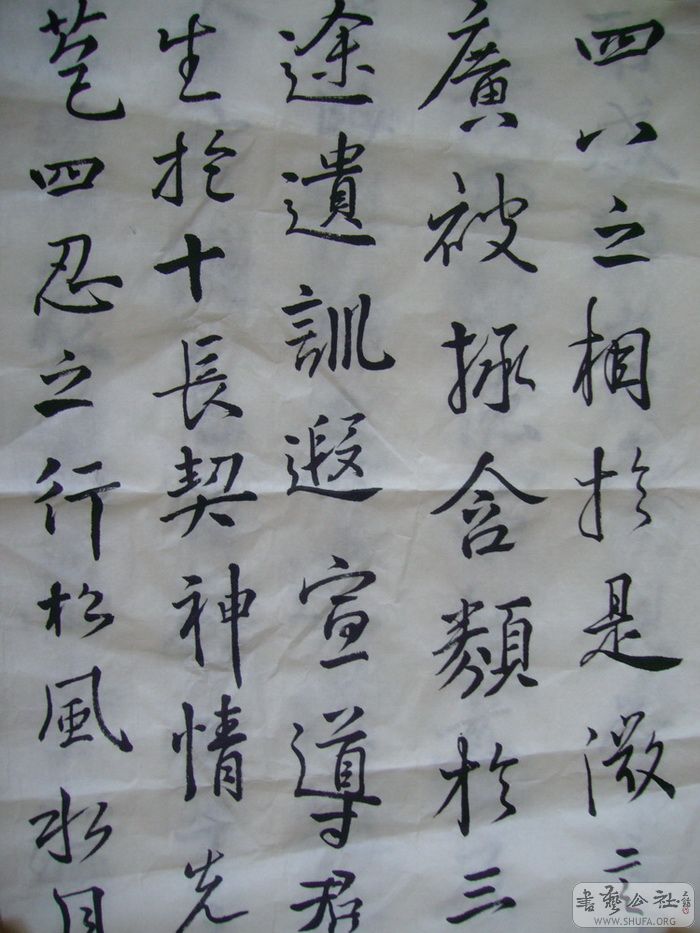 四八之相於是微言
廣被拯含類於三
途遺訓遐宣導羣
生於十長契神情先
苞四忍之行松風水月
書藝公社
WWW.SHUFA.ORG